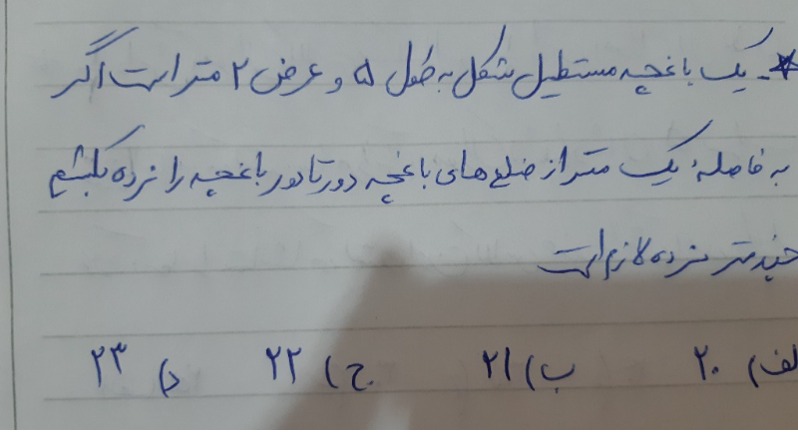 * - یک باغچه مستطیل شکل به طول ۵ و عرض ۲ متر است اگر
به فاصلهٔ یک متر از ضلع های باغچه دورتادور باغچه را نرده بکشیم
چند متر نرده لازم است
الف) ۲۰ ب) ۲۱ ج) ۲۲ د) ۲۳